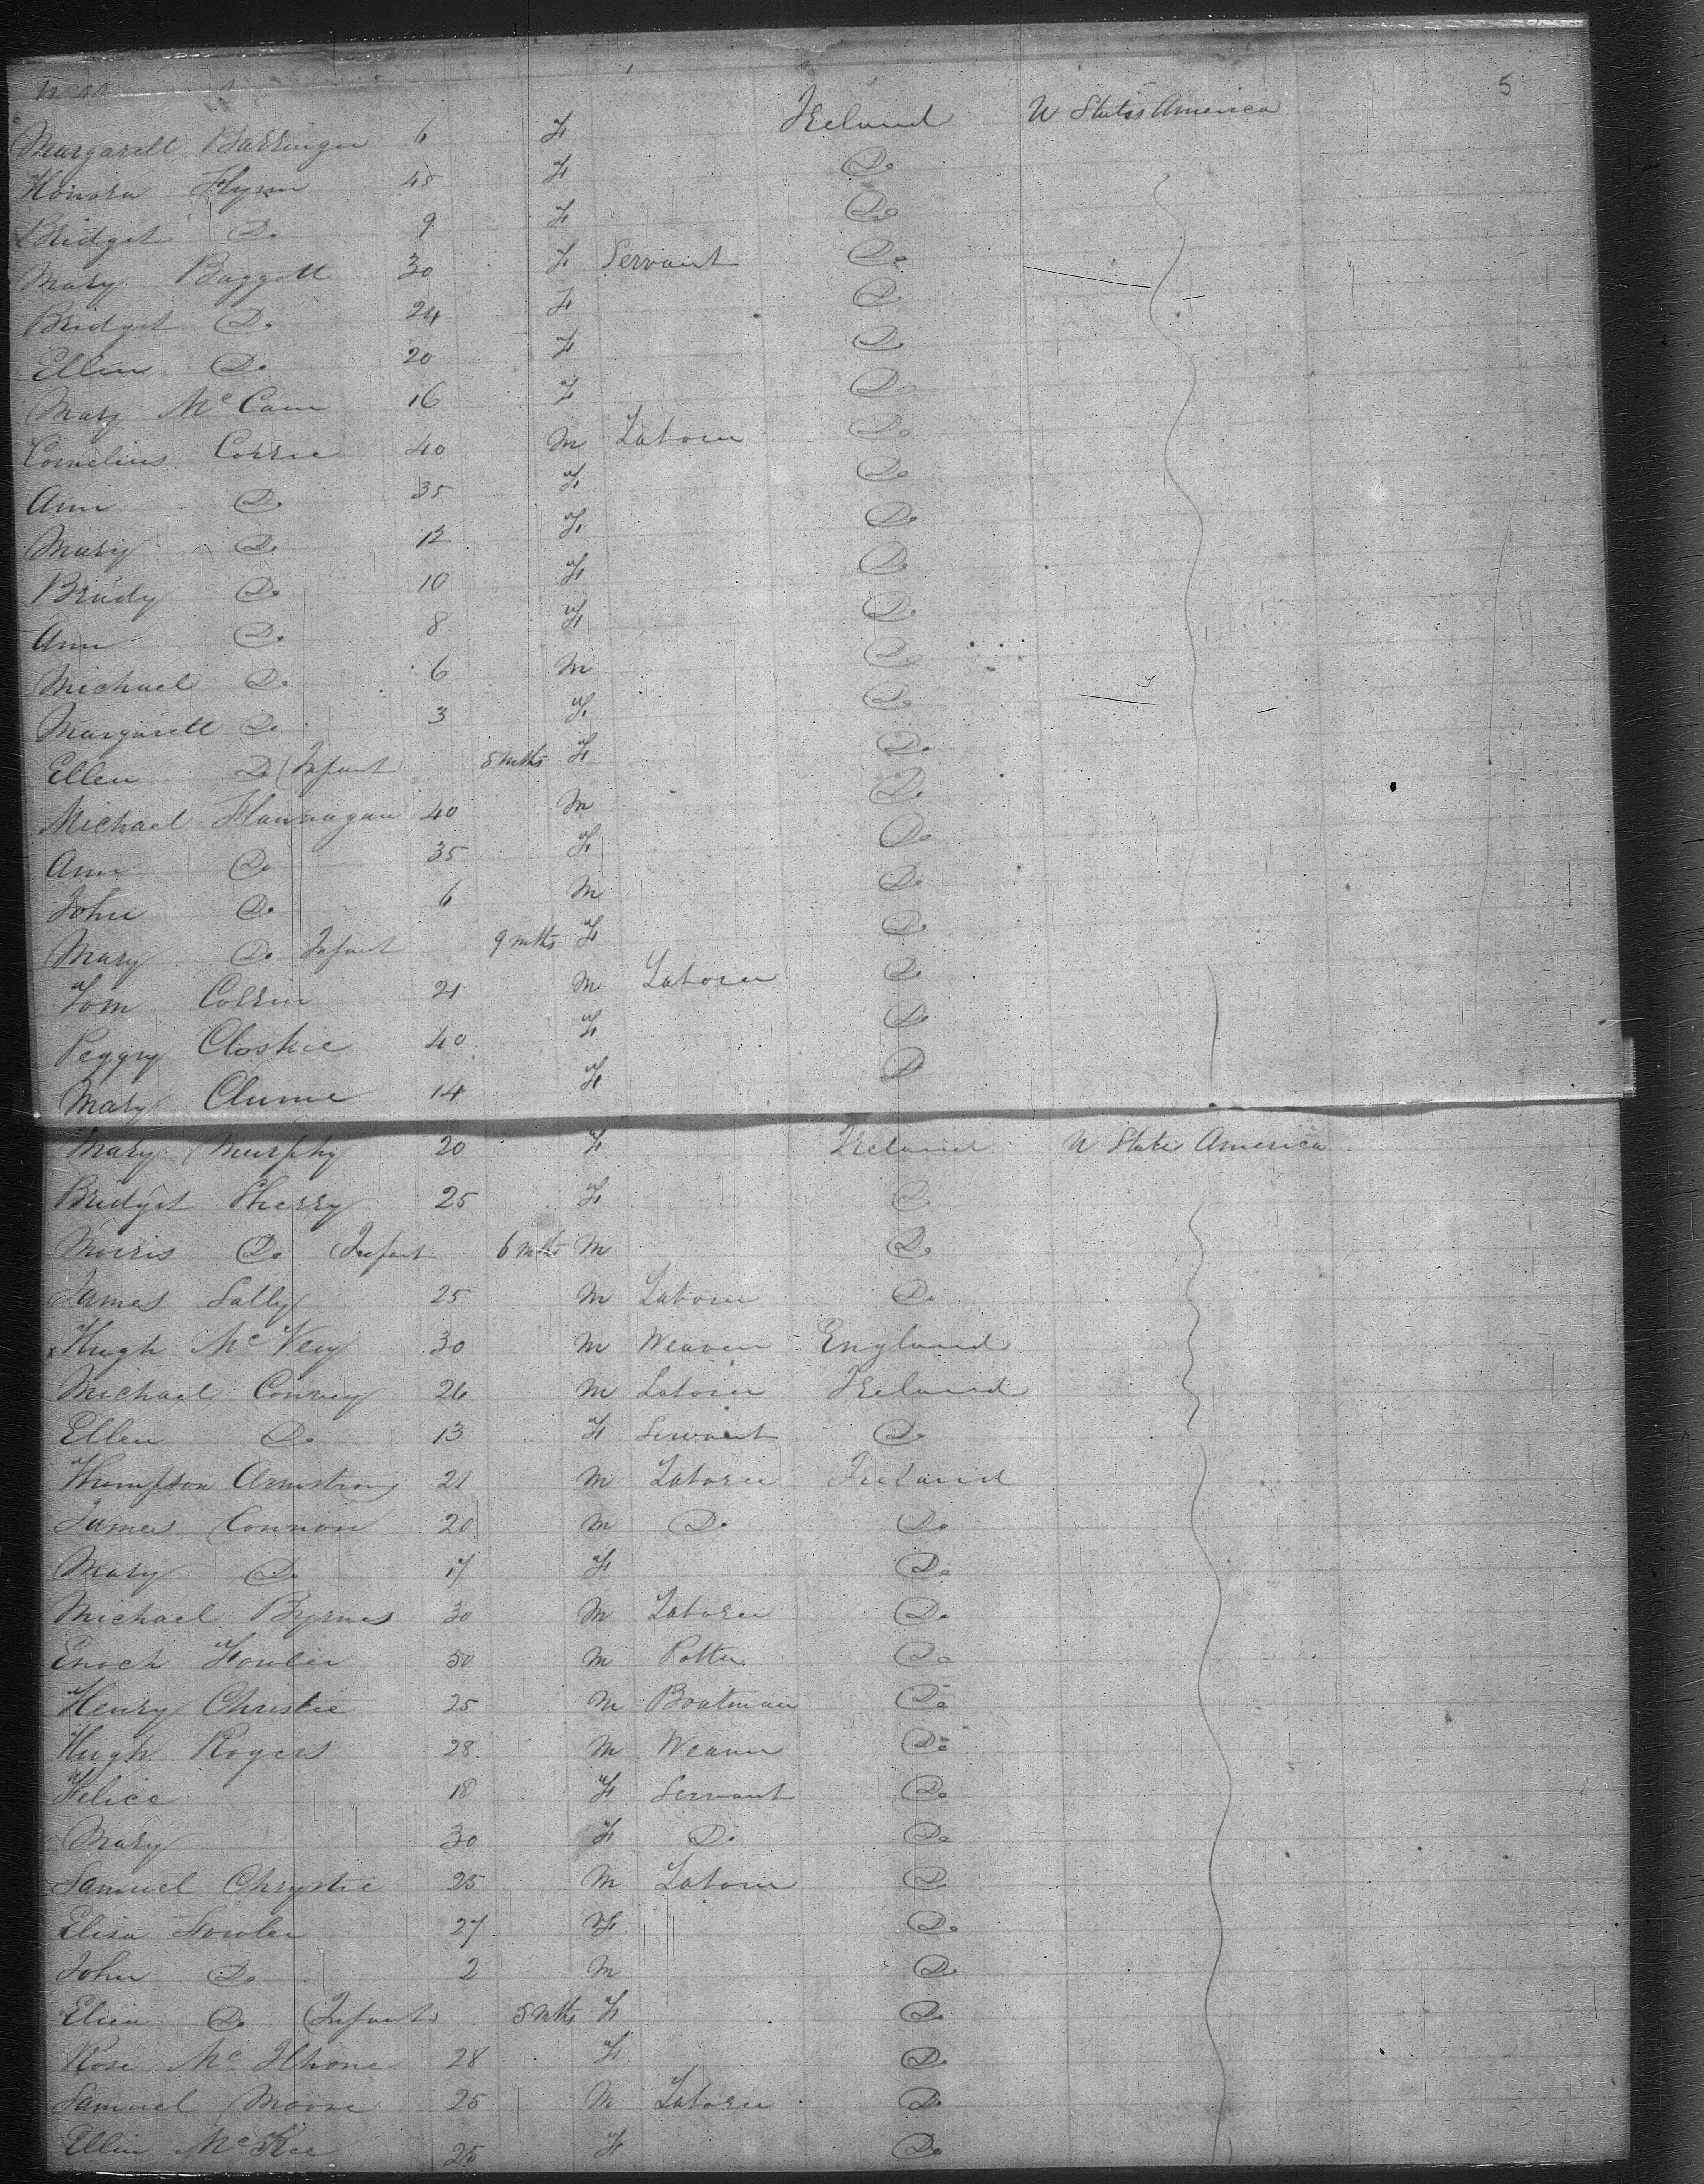 5
Margarett Barringer 6 F Ireland U States America
Honora Flynn 45 F Do
Bridget Do 9 F Do
Mary Baggott 30 F Servant Do
Bridget Do 24 F Do
Ellen Do 20 F Do
Mary McCann 16 F Do
Cornelius Corrie 40 M Laborer Do
Ann Do 35 F Do
Mary Do 12 F Do
Bridy Do 10 F Do
Ann Do 8 F Do
Michael Do 6 M Do
Margarett Do 3 F Do
Ellen Do (Infant) 8 mths F Do
Michael Flannagan 40 M Do
Ann Do 35 F Do
John Do 6 M Do
Mary Do Infant 9 mths F Do
Tom 21 M Laborer Do
Peggy Closkie 40 F Do
Mary Clunie 14 F Do
Mary Murphy 20 F Ireland U States America
Bridget Sherry 25 F Do
Morris Do (Infant 6 mths M Do
James Lally 25 M Laborer Do
x Hugh McVey 30 M Weaver England
Michael Convey 26 M Laborer Ireland
Ellen Do 13 F Servant Do
Thompson Armstrong 21 M Laborer Ireland
James Connon 20 M Do Do
Mary Do 17 F Do
Michael Byrnes 30 M Laborer Do
Enoch Fowler 50 M Potter Do
Henry Christie 25 M Boatman Do
Hugh Rogers 28 M Weaver Do
Felice 18 F Servant Do
Mary 30 F Do Do
Samuel Chrystie 25 M Laborer Do
Elisa Fowler 27 F Do
John Do 2 M Do
Elisa Do (Infant) 5 mths F Do
Rose 28 F Do
Samuel Moore 25 M Laborer Do
Ellen McKee 25 F Do